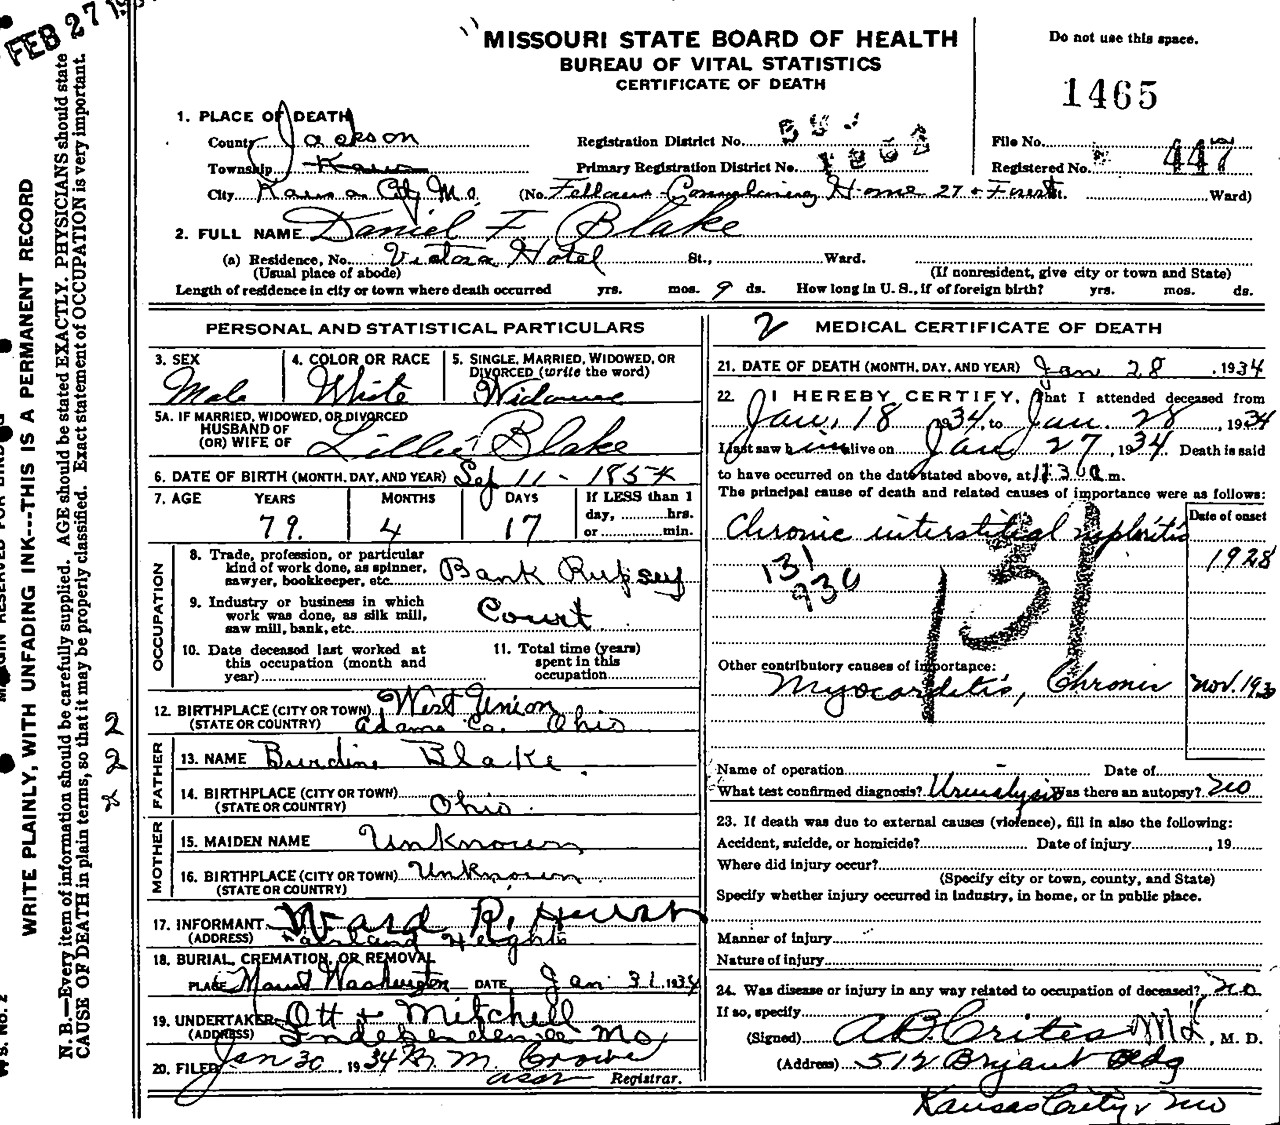 FEB 27
MISSOURI STATE BOARD OF HEALTH
BUREAU OF VITAL STATISTICS
CERTIFICATE OF DEATH
Do not use this space.
1465
1. PLACE OF DEATH
County Jackson
Township Kaw
City Kansas City Mo. (No. Home 27 + Forest St. Ward)
Registration District No.
Primary Registration District No.
File No.
Registered No. 447
2. FULL NAME Daniel F Blake
(a) Residence, No. Hotel St., Ward.
(Usual place of abode) (If nonresident, give city or town and State)
Length of residence in city or town where death occurred yrs. mos. 9 ds. How long in U. S., if of foreign birth? yrs. mos. ds.
PERSONAL AND STATISTICAL PARTICULARS
3. SEX 4. COLOR OR RACE 5. SINGLE, MARRIED, WIDOWED, OR
DIVORCED (write the word)
Male White Widower
5A. IF MARRIED, WIDOWED, OR DIVORCED
HUSBAND OF
(OR) WIFE OF Lillie Blake
6. DATE OF BIRTH (MONTH, DAY, AND YEAR) Sep 11 - 1854
7. AGE YEARS MONTHS DAYS If LESS than 1
day, hrs.
or min.
79. 4 17
OCCUPATION
8. Trade, profession, or particular
kind of work done, as spinner,
sawyer, bookkeeper, etc. Bank Rupsey
9. Industry or business in which
work was done, as silk mill,
saw mill, bank, etc. Court
10. Date deceased last worked at
this occupation (month and
year)
11. Total time (years)
spent in this
occupation
12. BIRTHPLACE (CITY OR TOWN) West Union
(STATE OR COUNTRY) Adams Co. Ohio
FATHER
13. NAME Burdine Blake
14. BIRTHPLACE (CITY OR TOWN)
(STATE OR COUNTRY) Ohio
MOTHER
15. MAIDEN NAME Unknown
16. BIRTHPLACE (CITY OR TOWN) Unknown
(STATE OR COUNTRY)
17. INFORMANT Ward R. Hurst
(ADDRESS) Heights
18. BURIAL, CREMATION, OR REMOVAL
PLACE Mount Washington DATE Jan 31, 1934
19. UNDERTAKER Ott + Mitchell
(ADDRESS) Independence Mo
20. FILED Jan 30, 1934 M. Crowe
asst Registrar.
2 MEDICAL CERTIFICATE OF DEATH
21. DATE OF DEATH (MONTH, DAY, AND YEAR) Jan 28, 1934
22. I HEREBY CERTIFY, That I attended deceased from
Jan. 18, 1934, to Jan. 28, 1934
I last saw him alive on Jan 27, 1934 Death is said
to have occurred on the date stated above, at m.
The principal cause of death and related causes of importance were as follows:
Date of onset
Chronic interstitial nephritis 1928
131
930
131
Other contributory causes of importance:
Myocarditis, Chronic Nov. 1930
Name of operation Date of
What test confirmed diagnosis? Urinalysis Was there an autopsy? no
23. If death was due to external causes (violence), fill in also the following:
Accident, suicide, or homicide? Date of injury , 19
Where did injury occur?
(Specify city or town, county, and State)
Specify whether injury occurred in industry, in home, or in public place.
Manner of injury
Nature of injury
24. Was disease or injury in any way related to occupation of deceased? no
If so, specify
(Signed) A B Crites MD, M. D.
(Address) 512 Bryant Bldg
Kansas City, Mo
WRITE PLAINLY, WITH UNFADING INK---THIS IS A PERMANENT RECORD
N. B.—Every item of information should be carefully supplied. AGE should be stated EXACTLY. PHYSICIANS should state
CAUSE OF DEATH in plain terms, so that it may be properly classified. Exact statement of OCCUPATION is very important.
2
2
2